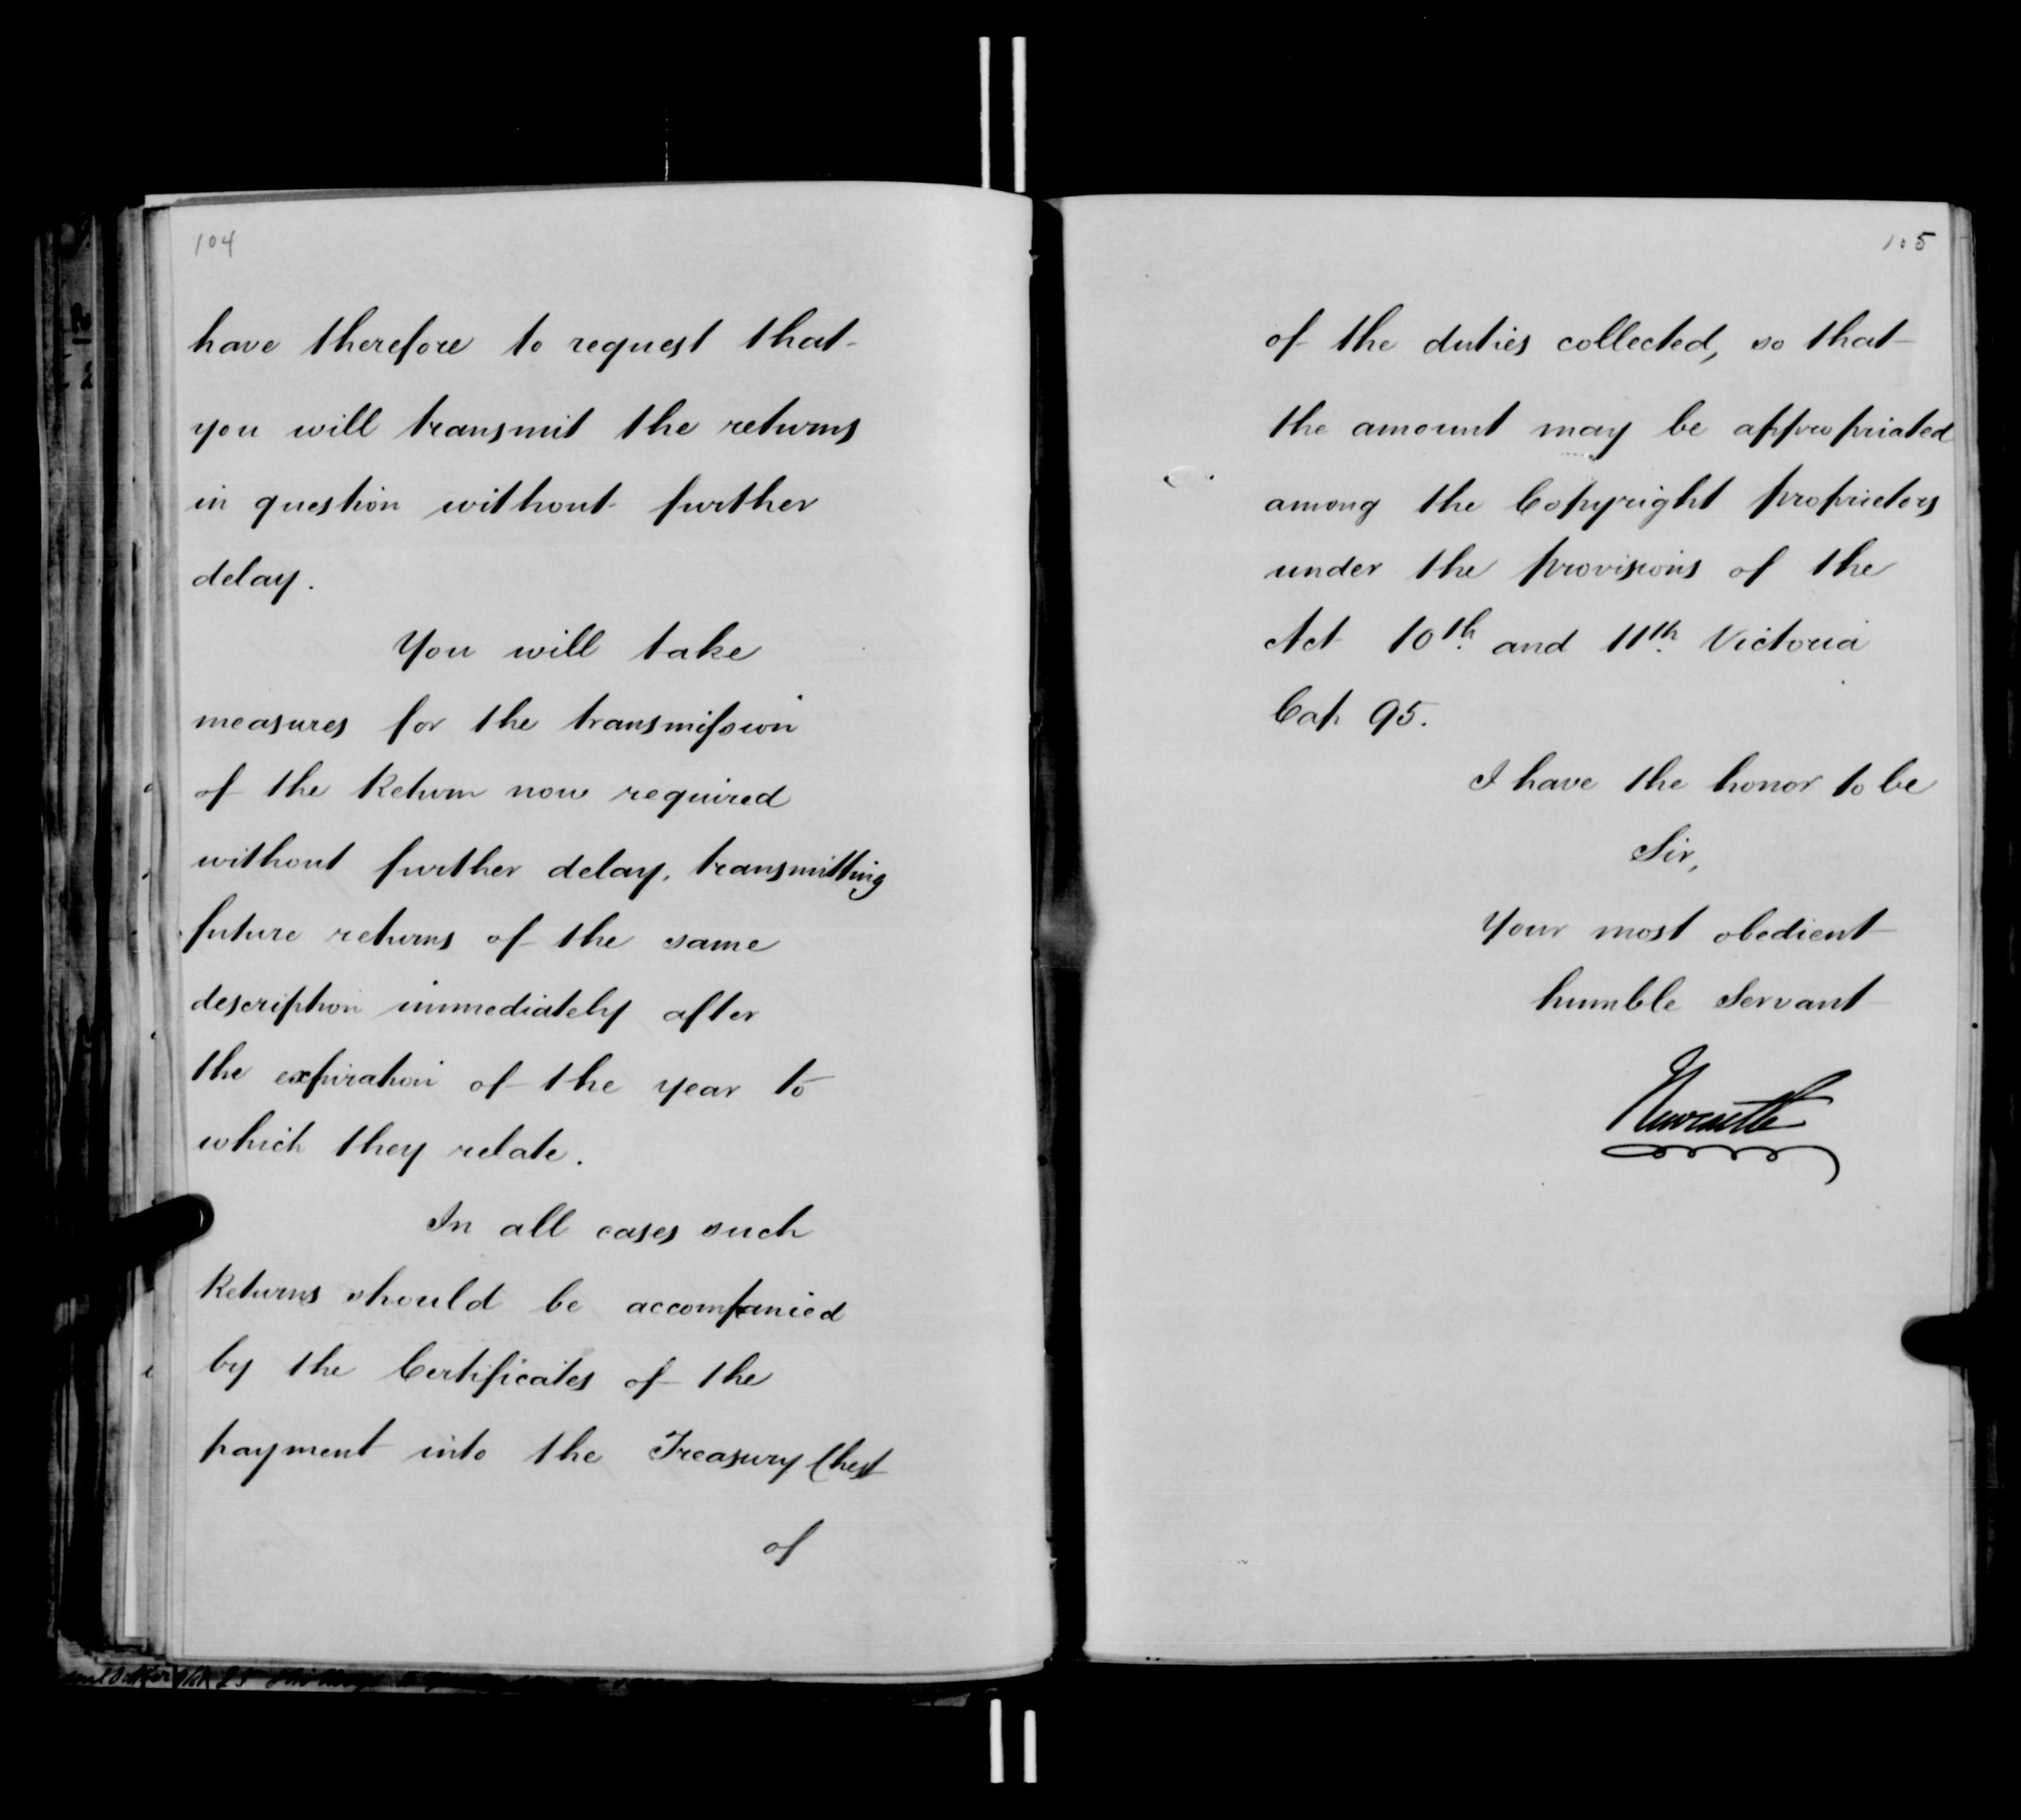 104
have therefore to request that
you will transmit the returns
in question without further
delay.
You will take
measures for the transmission
of the Return now required
without further delay, transmitting
future returns of the same
description immediately after
the expiration of the year to
which they relate.
In all cases such
Returns should be accompanied
by the Certificates of the
payment into the Treasury Chest
of
105
of the duties collected, so that
the amount may be appropriated
among the Copyright proprietors
under the provisions of the
Act 10th and 11th Victoria
Cap 95.
I have the honor to be
Sir,
Your most obedient
humble Servant
Newcastle